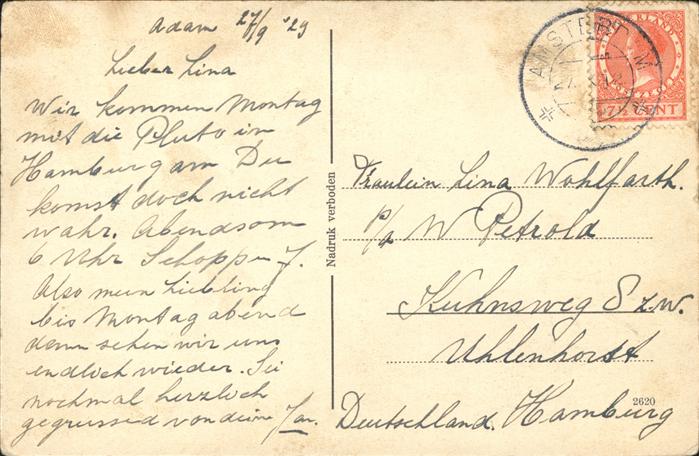 Adam 27/9 '29
Lieber Lina
Wir kommen Montag
mit die Pluto in
Hamburg am Du
komst doch nicht
wahr. Abends om
6 Uhr Schoppen J.
Also mein Liebling
bis Montag abend
dann sehen wir uns
endlich wieder. Sei
nochmal herzlich
gegrussed von dein Jan.
Nadruk verboden
AMSTERDAM
NEDERLAND
7½ CENT
Fraulein Lina Wohlfarth.
p/a W Petzold
Kuhnsweg 8 z.w.
Uhlenhorst
2620
Deutschland. Hamburg